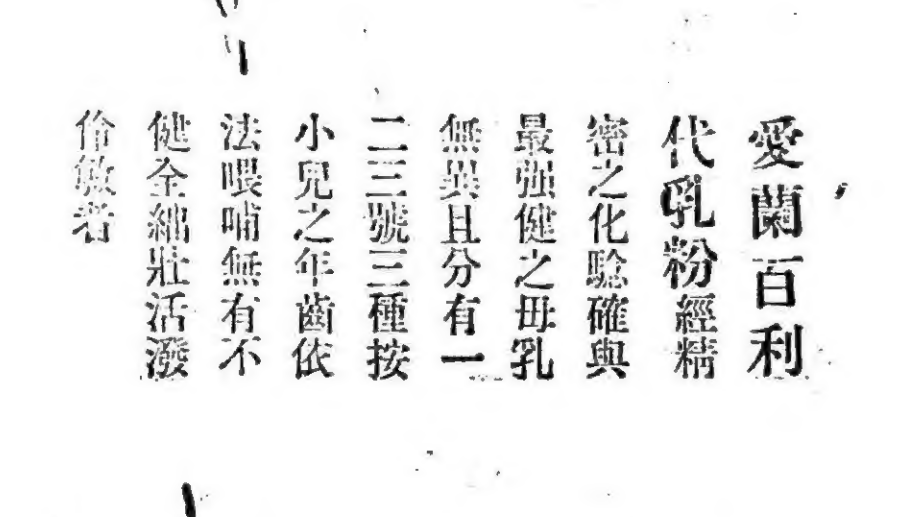 愛蘭百利
代乳粉經精
密之化騐確與
最强健之毋乳
無異且分有一
二三號三種按
小兒之年齒依
法喂哺無有不
健全綿壯活潑
伶敏者